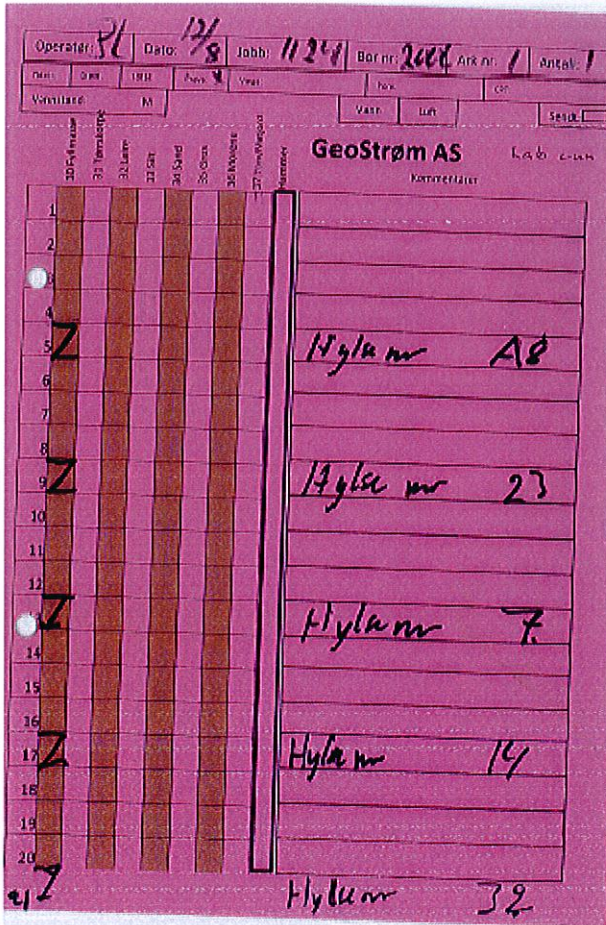 Operatør: PL Dato: 12/8 Jobb: 11241 Bor nr: Ark nr. 1 Antall: 1
Prøve X
Vannstand: M Vann Luft Sendt
30 Fyllmasse
31 Tørrskorpe
32 Leire
33 Silt
34 Sand
35 Grus
36 Morene
Hammer
GeoStrøm AS
Kommentarer
1
2
3
4
5 Hylse nr A8
6
7
8
9 Hylse nr 23
10
11
12
Hylse nr 7.
14
15
16
17 Hylse nr 14
18
19
20
21 Hylse nr 32